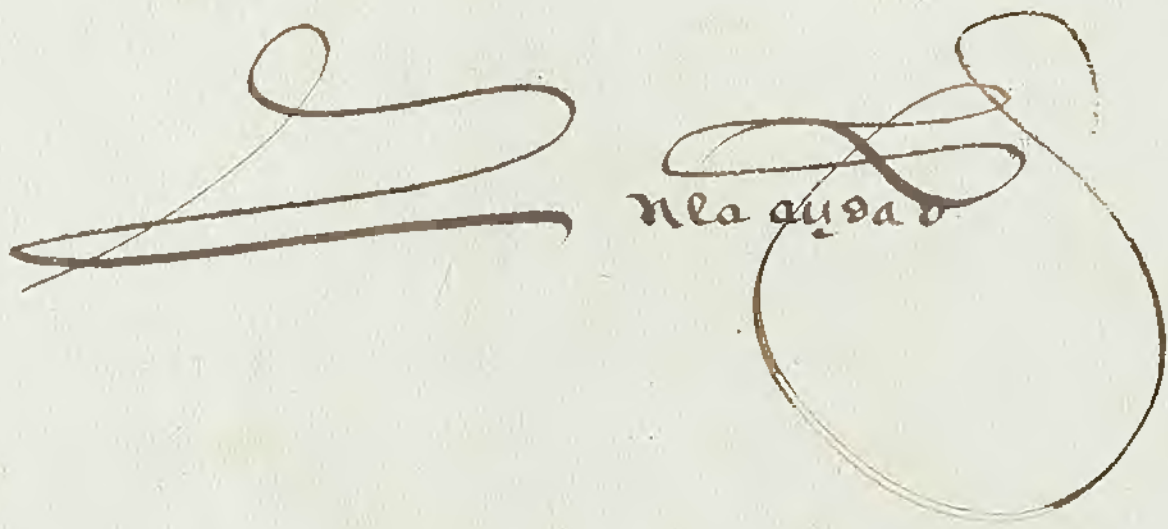 Enla çiudad